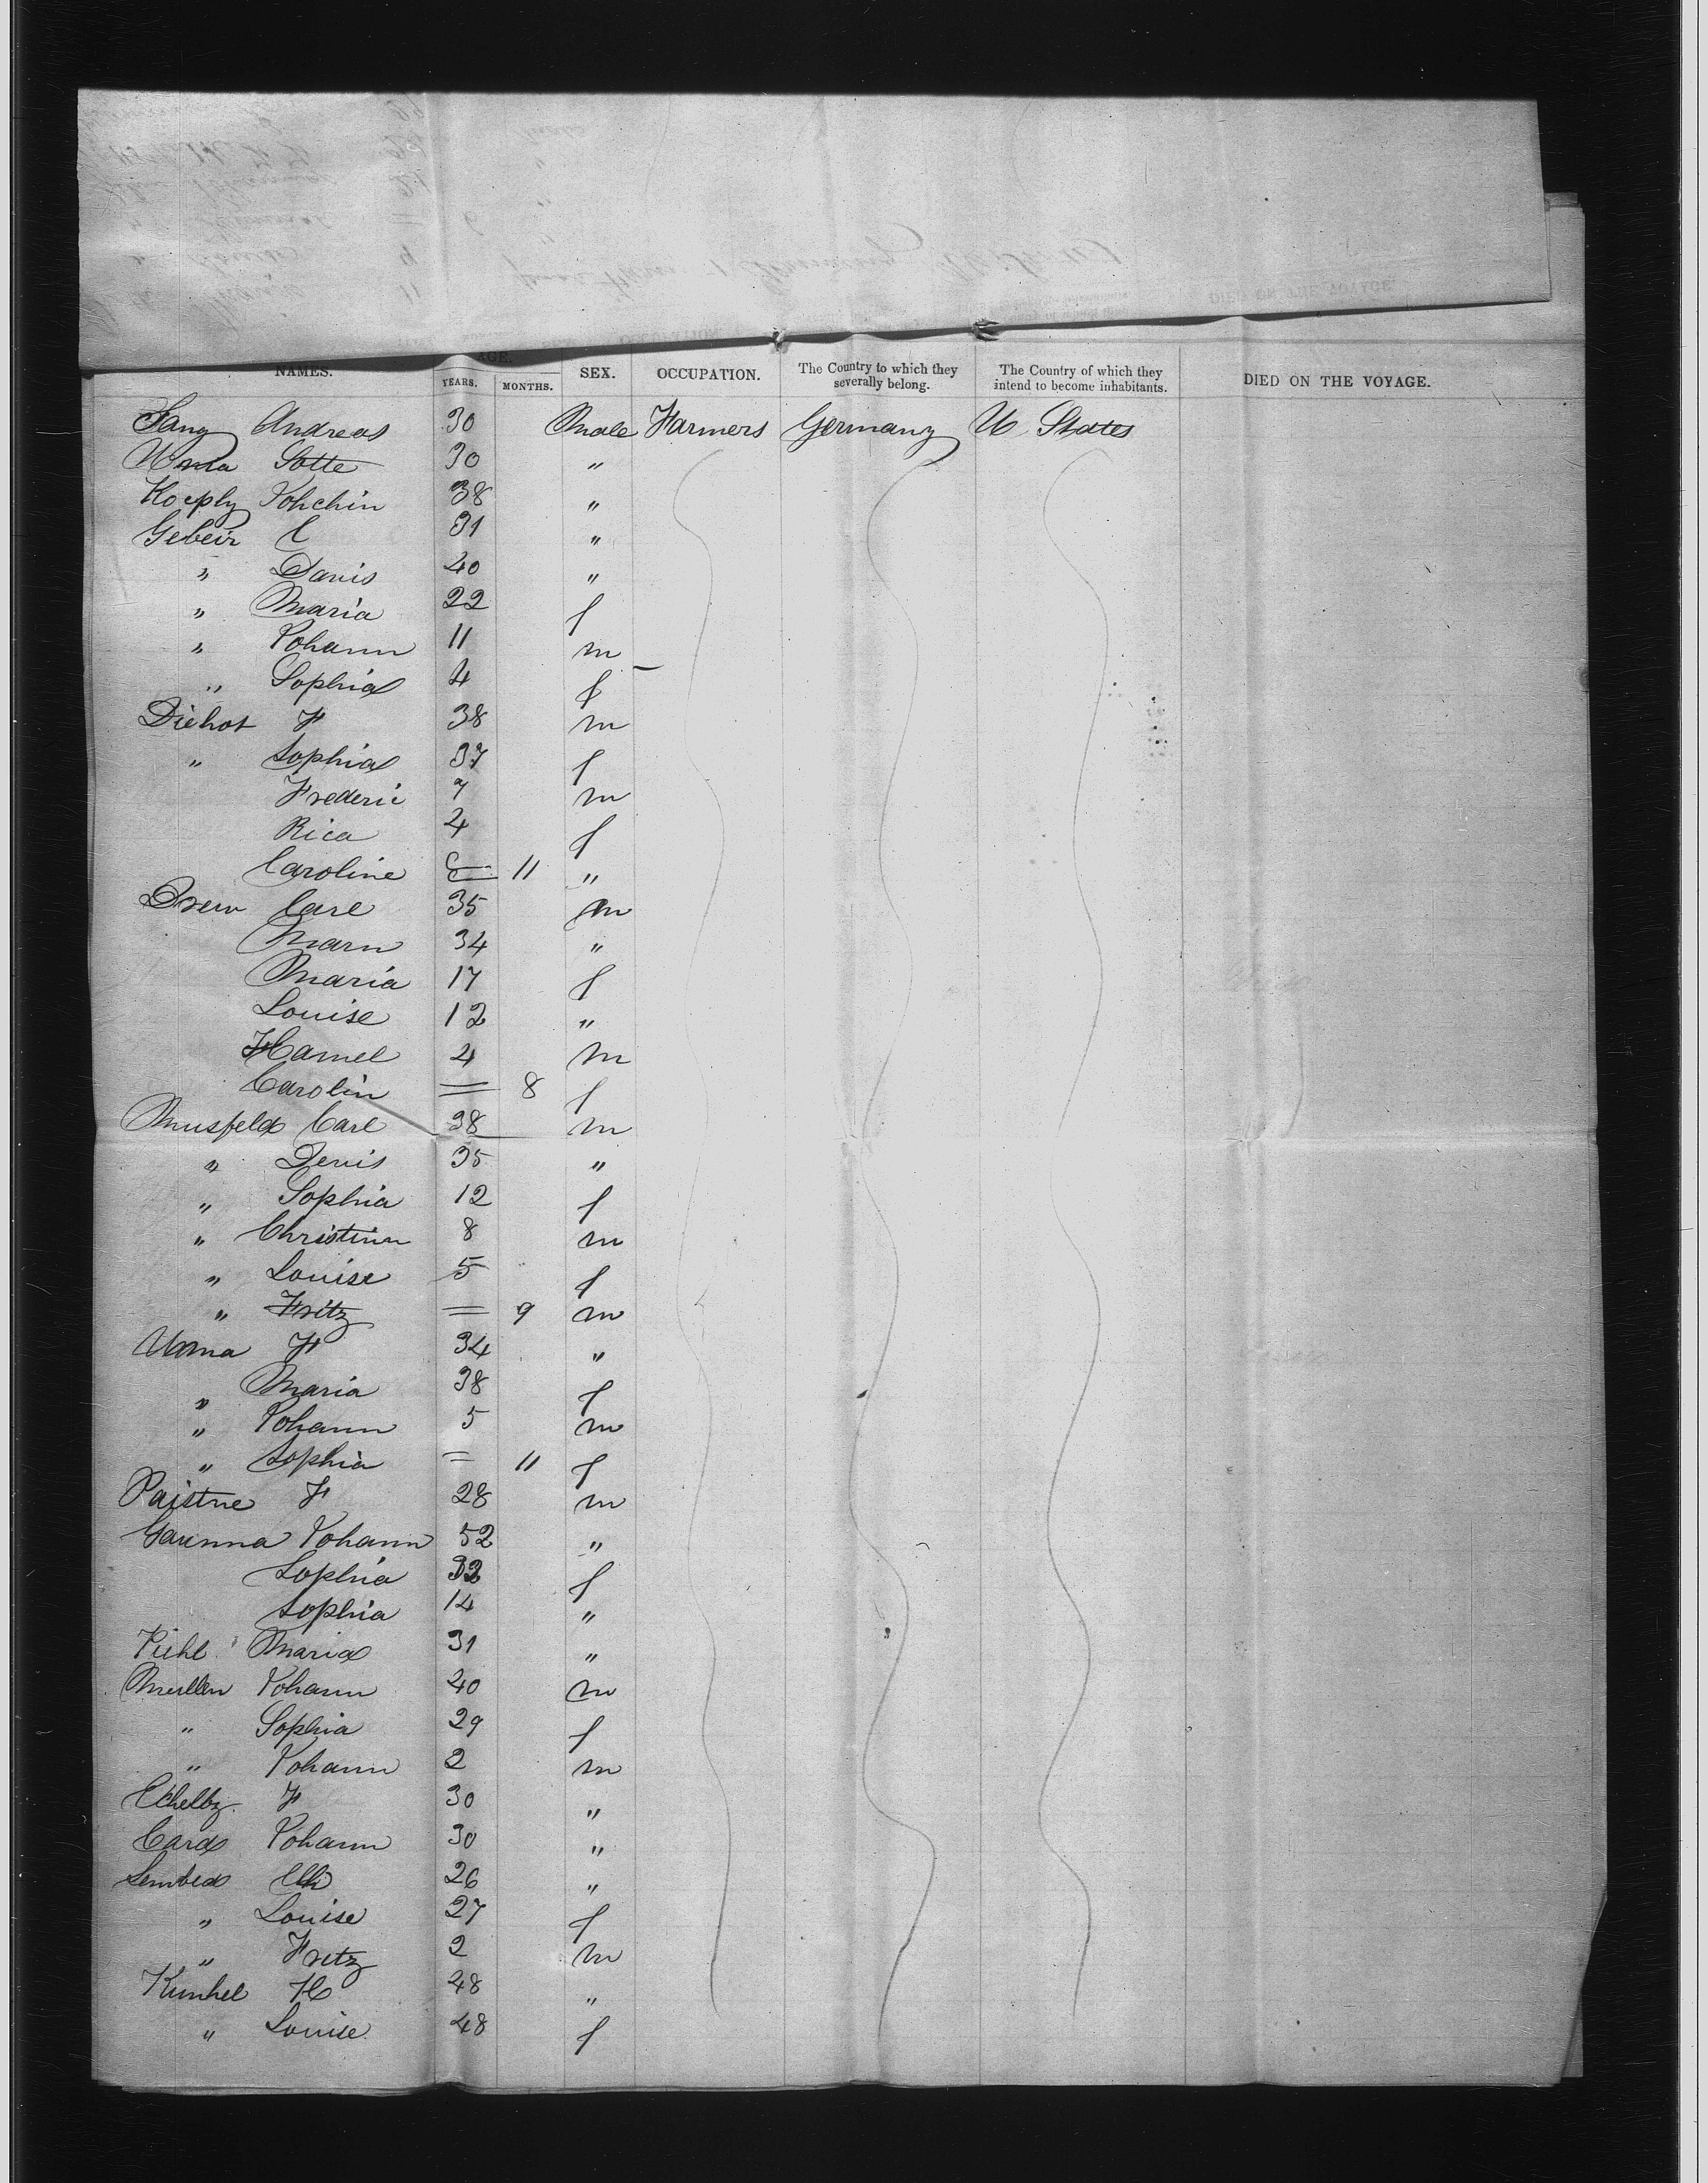 AGE.
NAMES. YEARS. MONTHS. SEX. OCCUPATION. The Country to which they severally belong. The Country of which they intend to become inhabitants. DIED ON THE VOYAGE.
Lang Andreas 30 Male Farmers Germany U States
Lotte 30 "
Hoeply Johchin 38 "
Gebein C 31 "
" Danis 40 "
" Maria 22 f
" Johann 11 m
" Sophia 4 f
Diehot F 38 m
" Sophia 37 f
Frederic 7 m
Rica 4 f
Caroline 11 "
Drew Carl 35 m
Marn 34 "
Maria 17 f
Louise 12 "
Hamel 4 m
Carolin = 8 f
Musfeld Carl 38 m
" Denis 35 "
" Sophia 12 f
" Christinn 8 m
" Louise 5 f
" Fritz = 9 m
Unna F 34 "
" Maria 38 f
" Johann 5 m
" Sophia = 11 f
Paistne F 28 m
Garenna Johann 52 "
Sophia 32 f
Sophia 14 "
Kiehl Maria 31 "
Mullen Johann 40 m
" Sophia 29 f
" Johann 2 m
Echelbz F 30 "
Card Johann 30 "
Lembed 26 "
" Louise 27 f
" Fritz 2 m
Kunhel H 48 "
" Louise 48 f